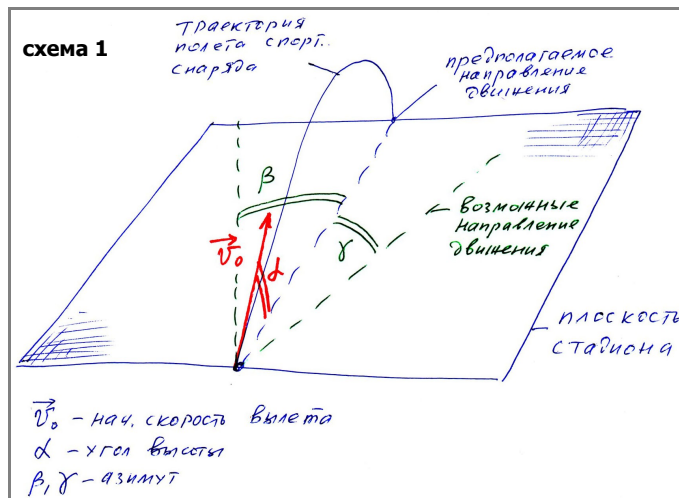 схема 1
траектория
полета спорт.
снаряда
предполагаемое
направление
движения
β
возможные
направление
движения
γ
v₀
α
плоскость
стадиона
v₀ – нач. скорость вылета
α – угол высоты
β, γ – азимут